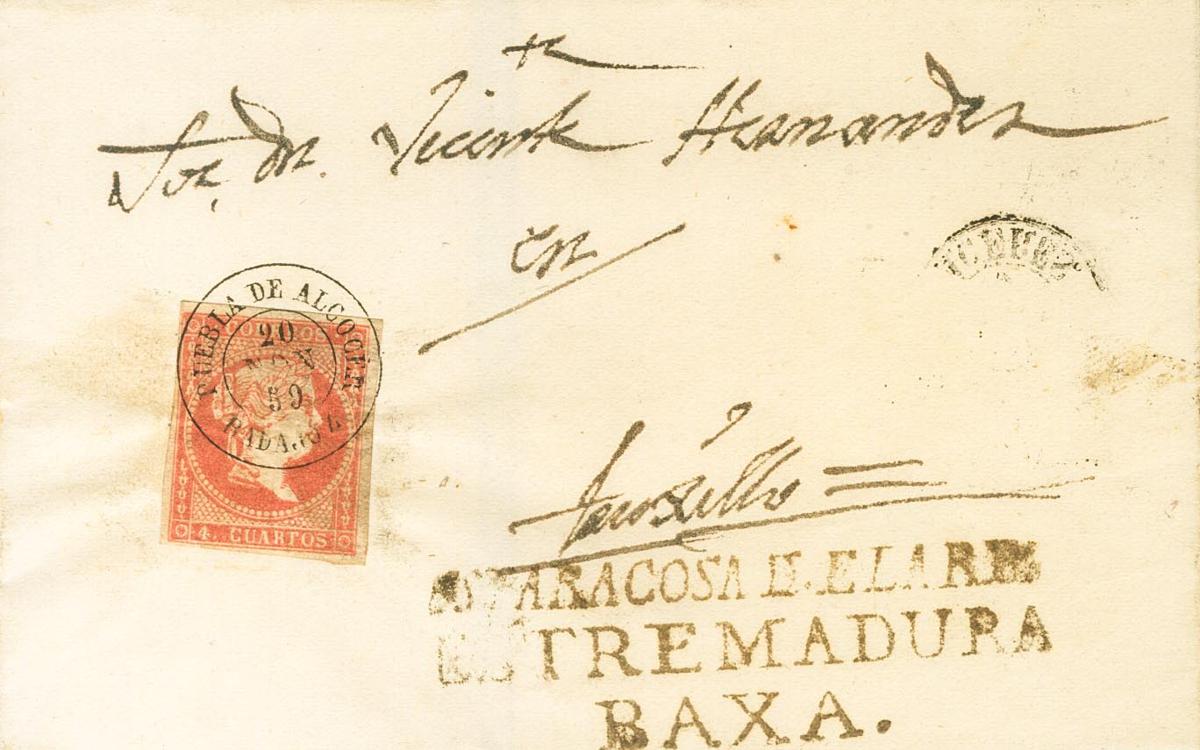 Sor. Dn. Vicente Hernandez
en
Truxillo
PUEBLA DE ALCOCER
20
NOV
59
BADAJOZ
CORREOS
4 CUARTOS
ESTREMADURA
BAXA.